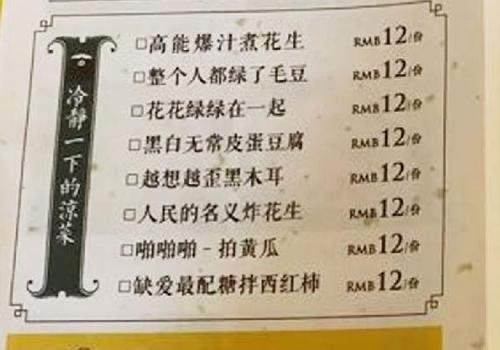 冷靜一下的涼菜
□高能爆汁煮花生 RMB12/份
□整个人都绿了毛豆 RMB12/份
□花花绿绿在一起 RMB12/份
□黑白无常皮蛋豆腐 RMB12/份
□越想越歪黑木耳 RMB12/份
□人民的名义炸花生 RMB12/份
□啪啪啪-拍黄瓜 RMB12/份
□缺爱最配糖拌西红柿 RMB12/份